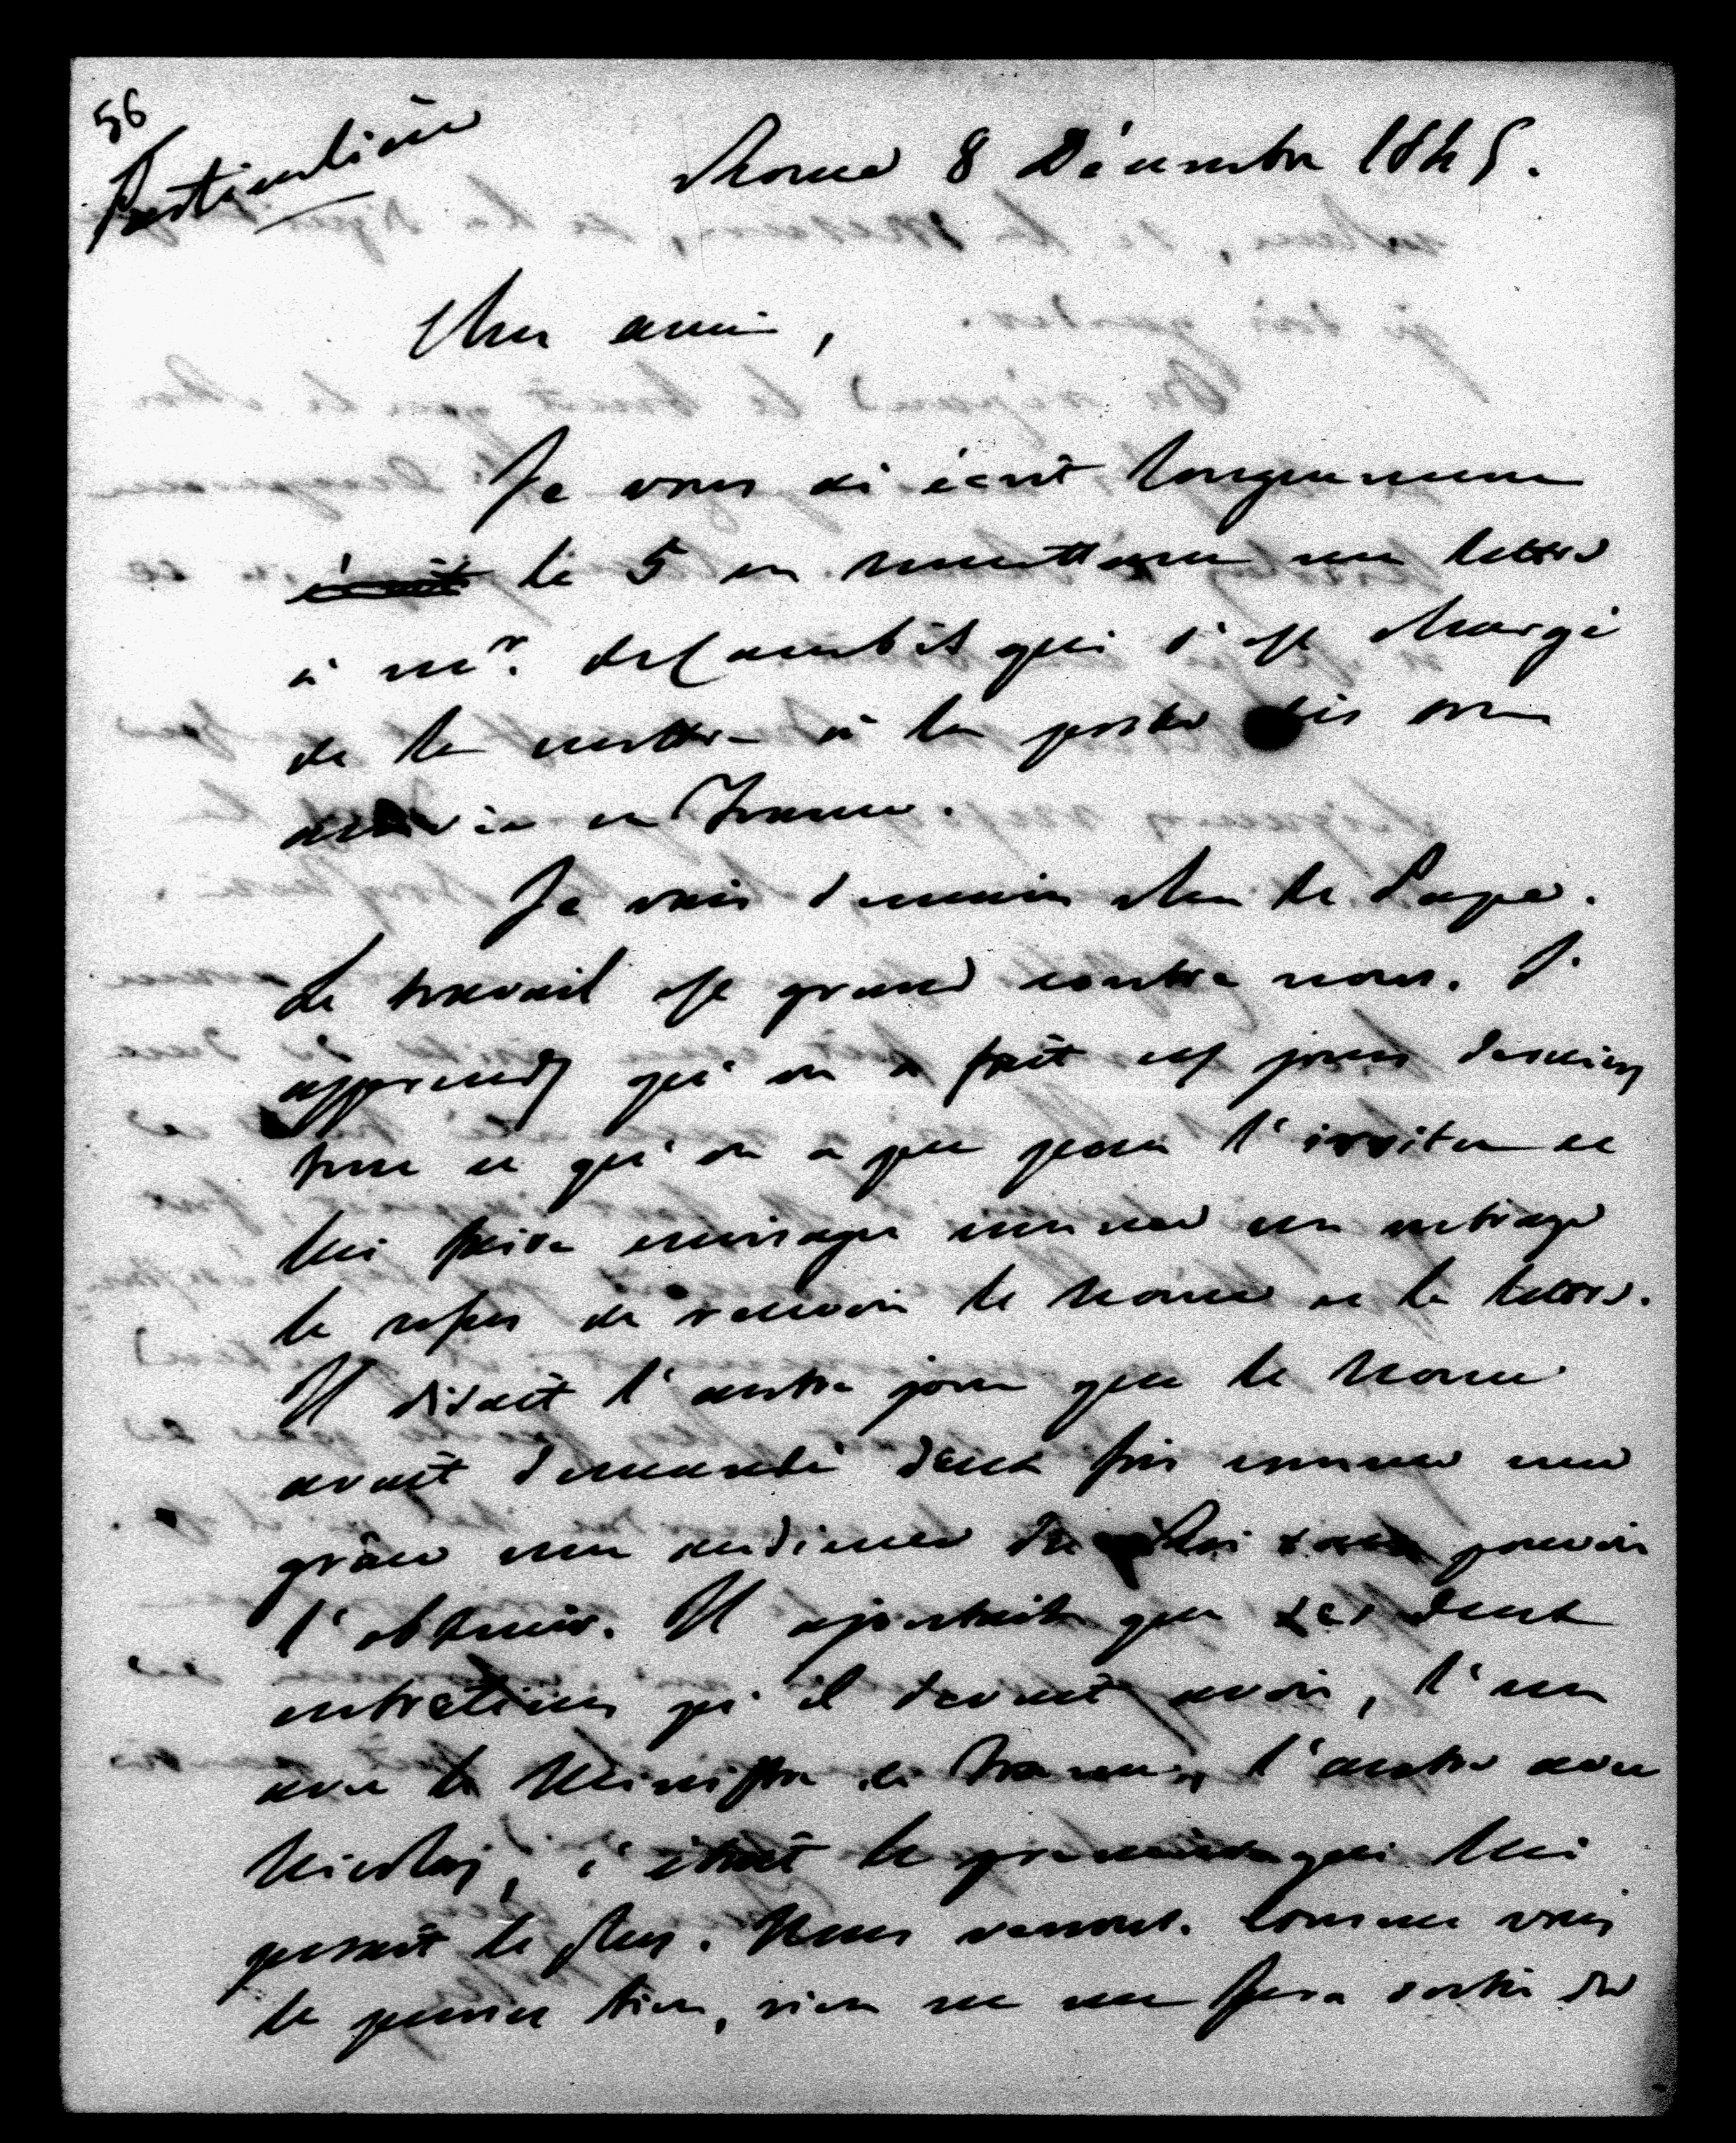 56
Particulière
Rome 8 Décembre 1845.
Cher ami,
Je vous ai écrit longuement
écrit le 5 en remettant ma lettre
à mr. de Cambis qui s'est chargé
de la mettre à la poste dès son
arrivée en France.
Je vais demain chez le Pape.
Le travail est grand contre nous. J'
apprends qu'on a fait ces jours derniers
tout ce qu'on a pu pour l'irriter et
lui faire envisager comme un outrage
le refus de recevoir le nonce et la lettre.
Il disait l'autre jour que le nonce
avait demandé deux fois comme une
grâce une audience du Roi sans pouvoir
l'obtenir. Il ajoutait que des deux
entretiens qu'il devait avoir, l'un
avec le Ministre de France, l'autre avec
Nicolas, c'était le premier qui lui
pesait le plus. Nous verrons. Comme vous
le pensez bien, rien ne me fera sortir du